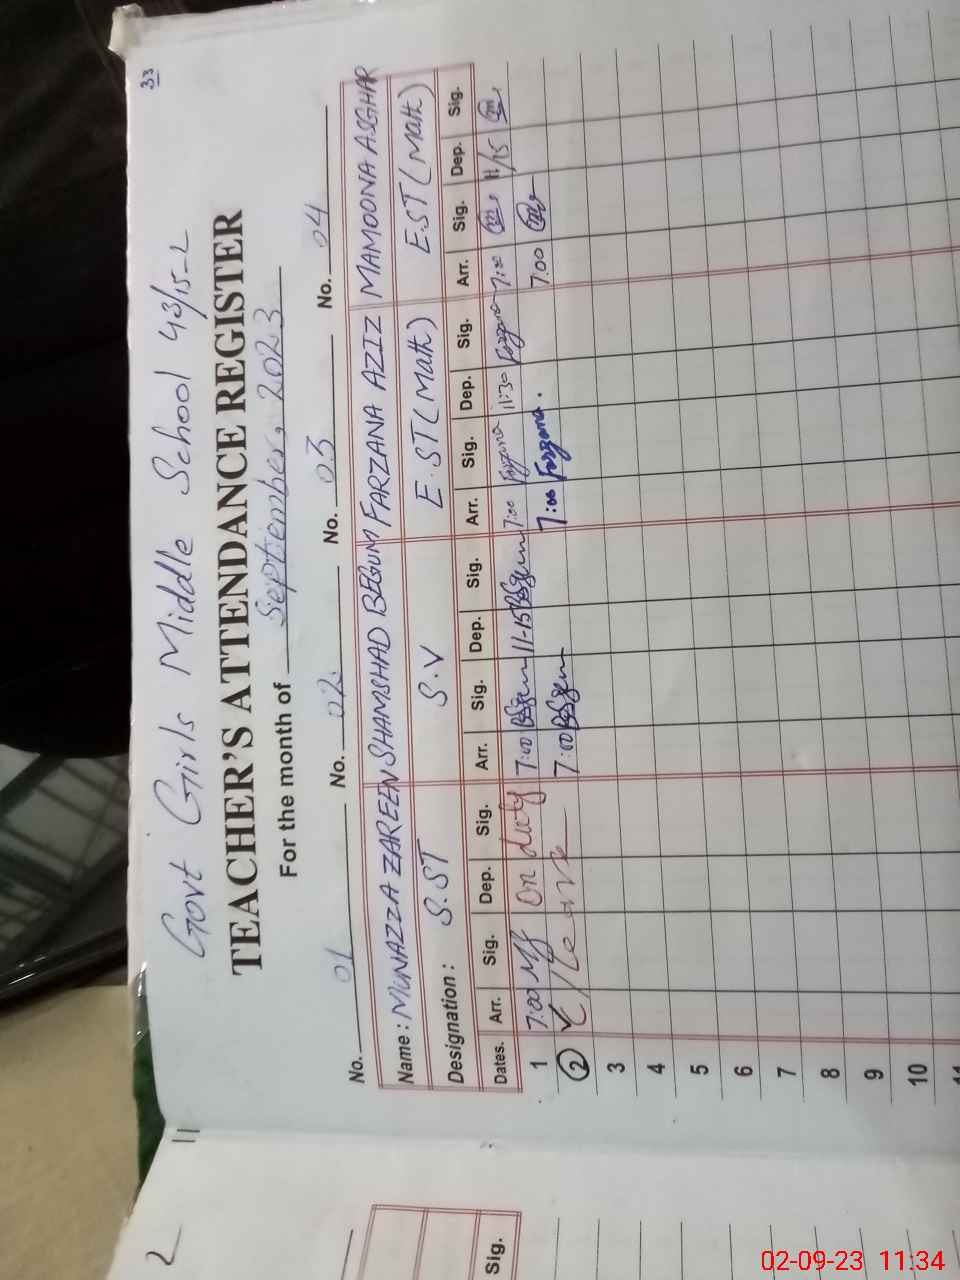 33
Govt Girls Middle School 43/15-L
TEACHER'S ATTENDANCE REGISTER
For the month of September, 2023
No. 01 No. 02 No. 03 No. 04
Name : MUNAZZA ZAREEN SHAMSHAD BEGUM FARZANA AZIZ MAMOONA ASGHAR
Designation : S.ST S.V E.ST (Math) E.ST (Math)
Dates. Arr. Sig. Dep. Sig. Arr. Sig. Dep. Sig. Arr. Sig. Dep. Sig. Arr. Sig. Dep. Sig.
1 7:00 On duty 7:00 11-15 7:00 Farzana 11:30 Farzana 7:00 11/15
2 Leave 7:00 7:00 Farzana. 7:00
3
4
5
6
7
8
9
10
11
2
Sig.
02-09-23 11:34